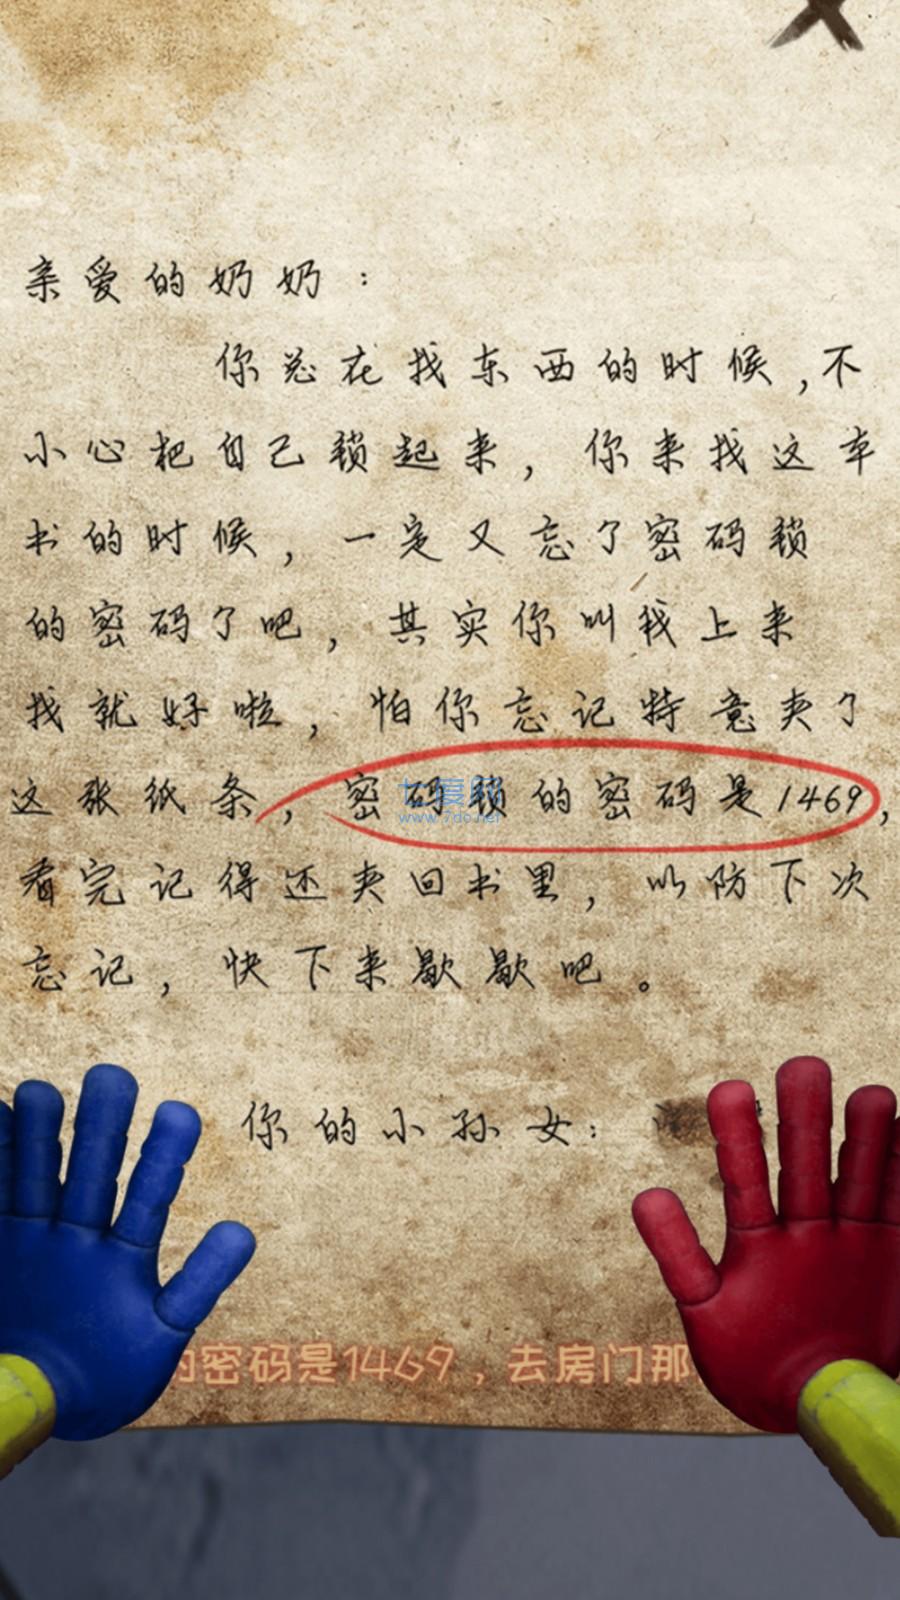 亲爱的奶奶：
你总在找东西的时候,不
小心把自己锁起来，你来找这本
书的时候，一定又忘了密码锁
的密码了吧，其实你叫我上来
找就好啦，怕你忘记特意夹了
这张纸条，密码锁的密码是1469，
七度网
www.7do.net
看完记得还夹回书里，以防下次
忘记，快下来歇歇吧。
你的小孙女：
的密码是1469，去房门那